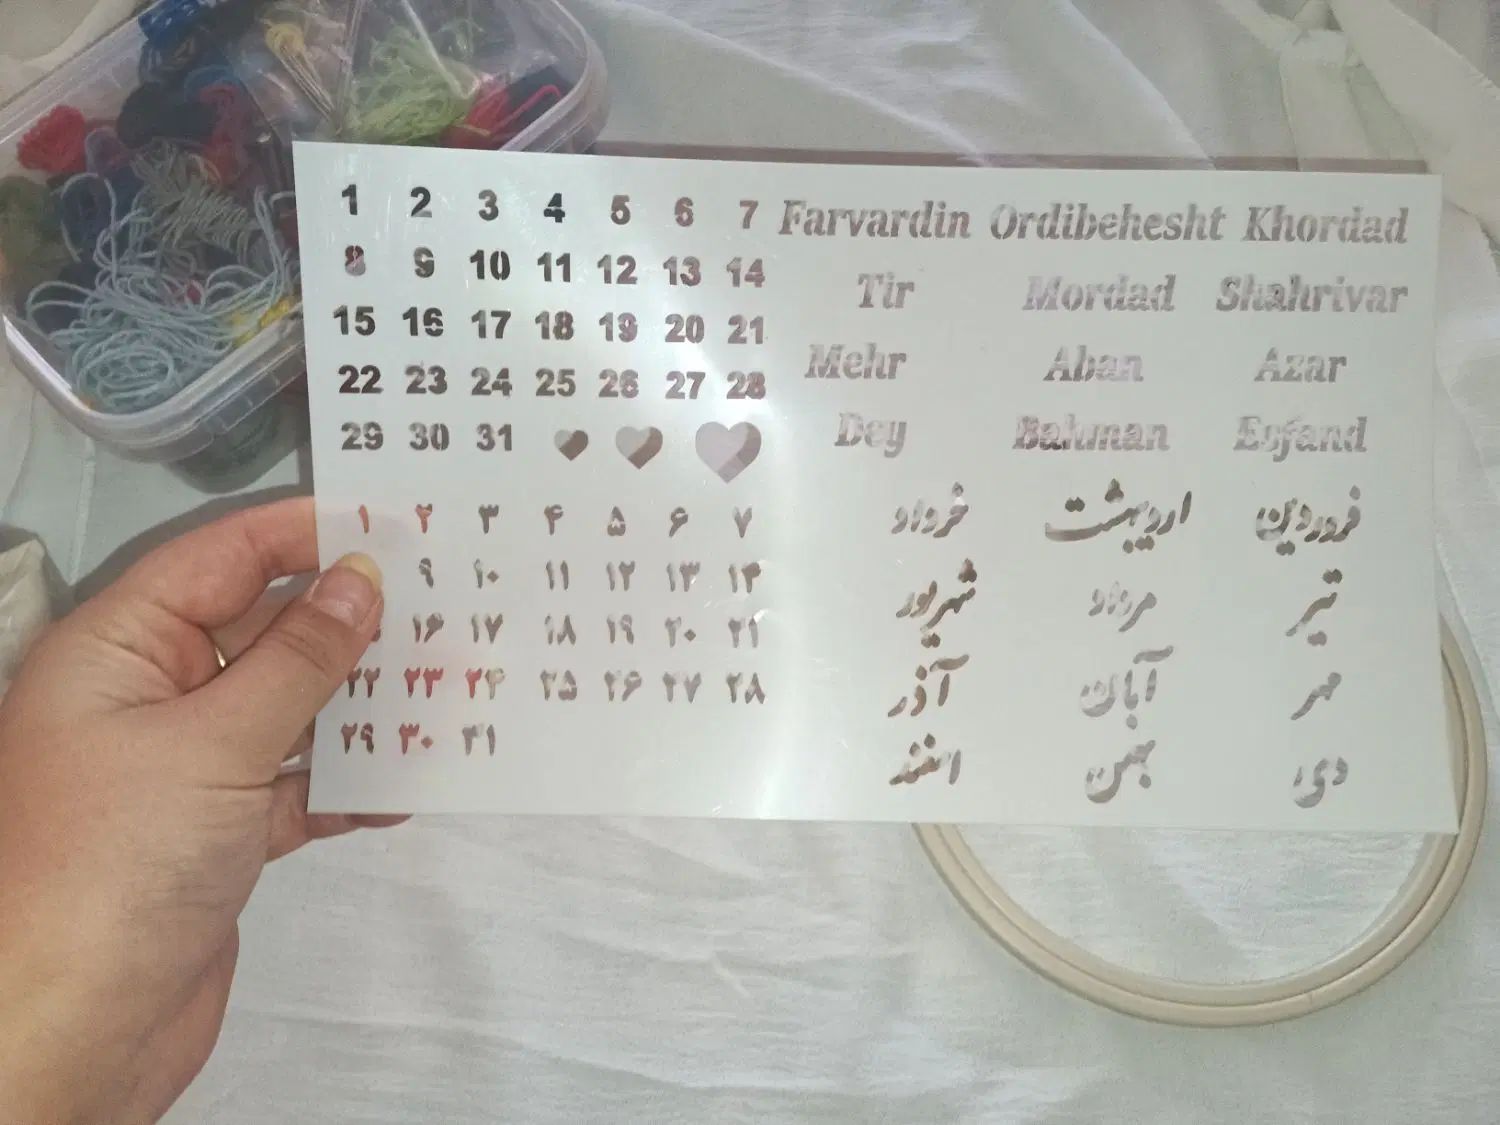 1 2 3 4 5 6 7
8 9 10 11 12 13 14
15 16 17 18 19 20 21
22 23 24 25 26 27 28
29 30 31
Farvardin Ordibehesht Khordad
Tir Mordad Shahrivar
Mehr Aban Azar
Dey Bahman Esfand
۱ ۲ ۳ ۴ ۵ ۶ ۷
۹ ۱۰ ۱۱ ۱۲ ۱۳ ۱۴
۱۶ ۱۷ ۱۸ ۱۹ ۲۰ ۲۱
۲۲ ۲۳ ۲۴ ۲۵ ۲۶ ۲۷ ۲۸
۲۹ ۳۰ ۳۱
فروردین اردیبهشت خرداد
تیر مرداد شهریور
مهر آبان آذر
دی بهمن اسفند